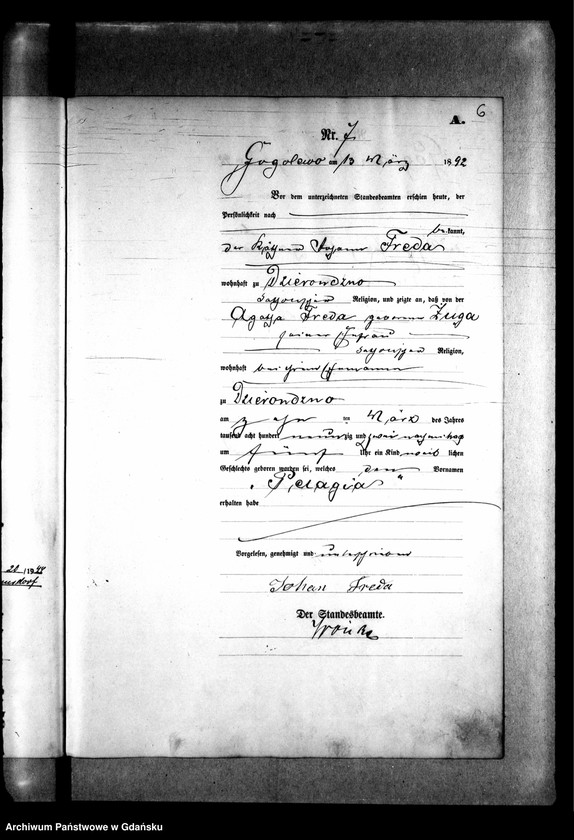 6
A.
Nr. 7
Gogolewo am 13 März 1892
Vor dem unterzeichneten Standesbeamten erschien heute, der
Persönlichkeit nach
bekannt,
der Käthner Johann Freda
wohnhaft zu Dzierondzno
katholischer Religion, und zeigte an, daß von der
Agatha Freda geborene Zuga
seiner Ehefrau
katholischer Religion,
wohnhaft bei ihrem Ehemanne
zu Dzierondzno
am zehn ten März des Jahres
tausend acht hundert neunzig und zwei nachmittags
um fünf Uhr ein Kind weib lichen
Geschlechts geboren worden sei, welches den Vornamen
"Pelagia"
erhalten habe
Vorgelesen, genehmigt und unterschrieben
Johan Freda
Der Standesbeamte.
Archiwum Państwowe w Gdańsku